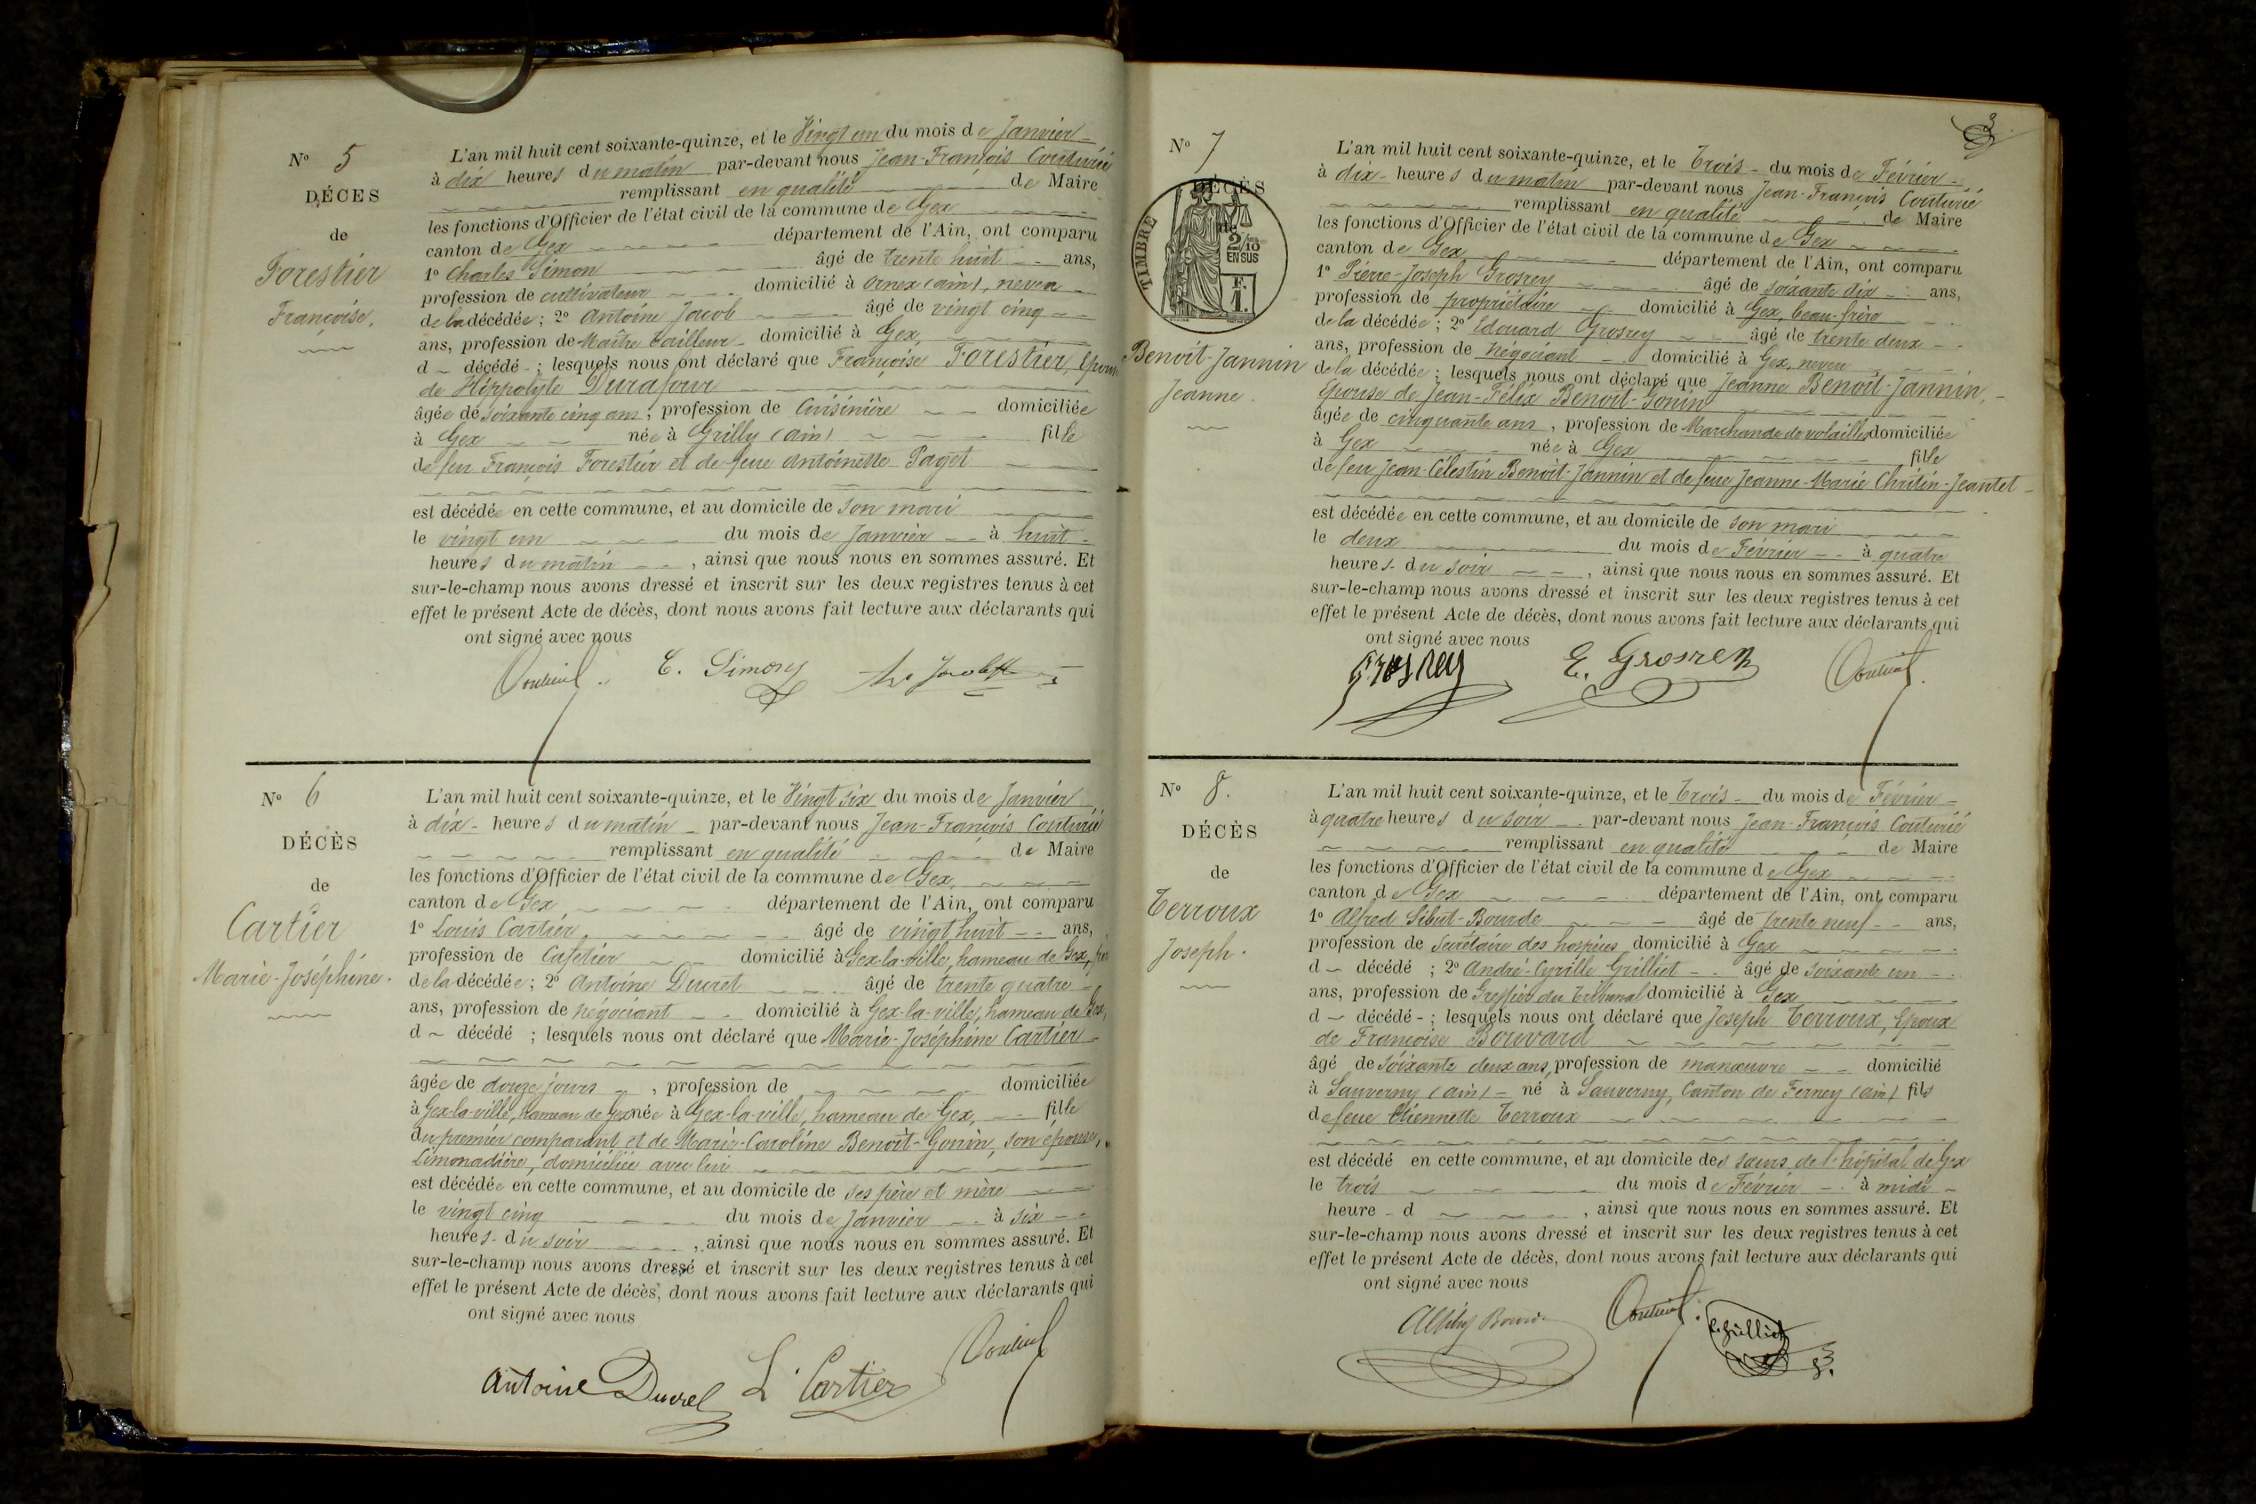 N° 5
DÉCES
de
Forestier
Françoise.
L'an mil huit cent soixante-quinze, et le Vingt un du mois de Janvier
à dix heures du matin par-devant nous Jean-François Couturié
remplissant en qualité de Maire
les fonctions d'Officier de l'état civil de la commune de Gex
canton de Gex département de l'Ain, ont comparu
1° Charles Simon âgé de trente huit ans,
profession de cultivateur domicilié à Ornex (ain), neveu
de la décédée ; 2° Antoine Jacob âgé de vingt cinq
ans, profession de Maître tailleur domicilié à Gex,
d décédé ; lesquels nous ont déclaré que Françoise Forestier, Epouse
de Hyppolyte Durafour
âgée de soixante cinq ans ; profession de Cuisinière domiciliée
à Gex née à Grilly (ain) fille
de feu François Forestier et de feue Antoinette Paget
est décédée en cette commune, et au domicile de son mari
le vingt un du mois de Janvier à huit
heures du matin , ainsi que nous nous en sommes assuré. Et
sur-le-champ nous avons dressé et inscrit sur les deux registres tenus à cet
effet le présent Acte de décès, dont nous avons fait lecture aux déclarants qui
ont signé avec nous
Couturié C. Simon
N° 6
DÉCÈS
de
Cartier
Marie-Joséphine.
L'an mil huit cent soixante-quinze, et le Vingt six du mois de Janvier
à dix heures du matin par-devant nous Jean-François Couturié
remplissant en qualité de Maire
les fonctions d'Officier de l'état civil de la commune de Gex
canton de Gex département de l'Ain, ont comparu
1° Louis Cartier, âgé de vingt huit ans,
profession de Cafetier domicilié à Gex-la-ville, hameau de Gex, père
de la décédée ; 2° Antoine Ducret âgé de trente quatre
ans, profession de négociant domicilié à Gex-la-ville, hameau de Gex,
d décédé ; lesquels nous ont déclaré que Marie-Joséphine Cartier
âgée de douze jours , profession de domiciliée
à Gex-la-ville, hameau de Gex née à Gex-la-ville, hameau de Gex, fille
du premier comparant et de Marie-Caroline Benoit-Gonin, son épouse,
Limonadière, domiciliée avec lui
est décédée en cette commune, et au domicile de ses père et mère
le vingt cinq du mois de Janvier à six
heures du soir , ainsi que nous nous en sommes assuré. Et
sur-le-champ nous avons dressé et inscrit sur les deux registres tenus à cet
effet le présent Acte de décès, dont nous avons fait lecture aux déclarants qui
ont signé avec nous
Antoine Ducret L. Cartier Couturié
3
N° 7
DÉCÈS
de
TIMBRE
2/10 EN SUS
F. 1.
Benoit-Jannin
Jeanne.
L'an mil huit cent soixante-quinze, et le Trois du mois de Février
à dix heures du matin par-devant nous Jean-François Couturié
remplissant en qualité de Maire
les fonctions d'Officier de l'état civil de la commune de Gex
canton de Gex, département de l'Ain, ont comparu
1° Pierre-Joseph Grosrey âgé de soixante dix ans,
profession de propriétaire domicilié à Gex, beau-frère
de la décédée ; 2° Edouard Grosrey âgé de trente deux
ans, profession de négociant domicilié à Gex, neveu
de la décédée ; lesquels nous ont déclaré que Jeanne Benoit-Jannin,
Epouse de Jean-Félix Benoit-Gonin
âgée de cinquante ans , profession de Marchande de volailles domiciliée
à Gex née à Gex fille
de feu Jean-Célestin Benoit-Jannin et de feue Jeanne-Marie Chritin-Jeantet
est décédée en cette commune, et au domicile de son mari
le deux du mois de Février à quatre
heures du soir , ainsi que nous nous en sommes assuré. Et
sur-le-champ nous avons dressé et inscrit sur les deux registres tenus à cet
effet le présent Acte de décès, dont nous avons fait lecture aux déclarants qui
ont signé avec nous
Grosrey E. Grosrey Couturié
N° 8.
DÉCÈS
de
Terroux
Joseph.
L'an mil huit cent soixante-quinze, et le Trois du mois de Février
à quatre heures du soir par-devant nous Jean-François Couturié
remplissant en qualité de Maire
les fonctions d'Officier de l'état civil de la commune de Gex
canton de Gex département de l'Ain, ont comparu
1° Alfred Sibut-Bourde âgé de trente neuf ans,
profession de Secrétaire des hospices domicilié à Gex
d décédé ; 2° André-Cyrille Grilliet âgé de soixante un
ans, profession de Greffier du Tribunal domicilié à Gex
d décédé ; lesquels nous ont déclaré que Joseph Terroux, Epoux
de Françoise Bouvard
âgé de soixante deux ans, profession de manœuvre domicilié
à Sauverny (ain) né à Sauverny, Canton de Ferney (ain) fils
de feue Etiennette Terroux
est décédé en cette commune, et au domicile des sœurs de l'hôpital de Gex
le trois du mois de Février à midi
heure d , ainsi que nous nous en sommes assuré. Et
sur-le-champ nous avons dressé et inscrit sur les deux registres tenus à cet
effet le présent Acte de décès, dont nous avons fait lecture aux déclarants qui
ont signé avec nous
Couturié